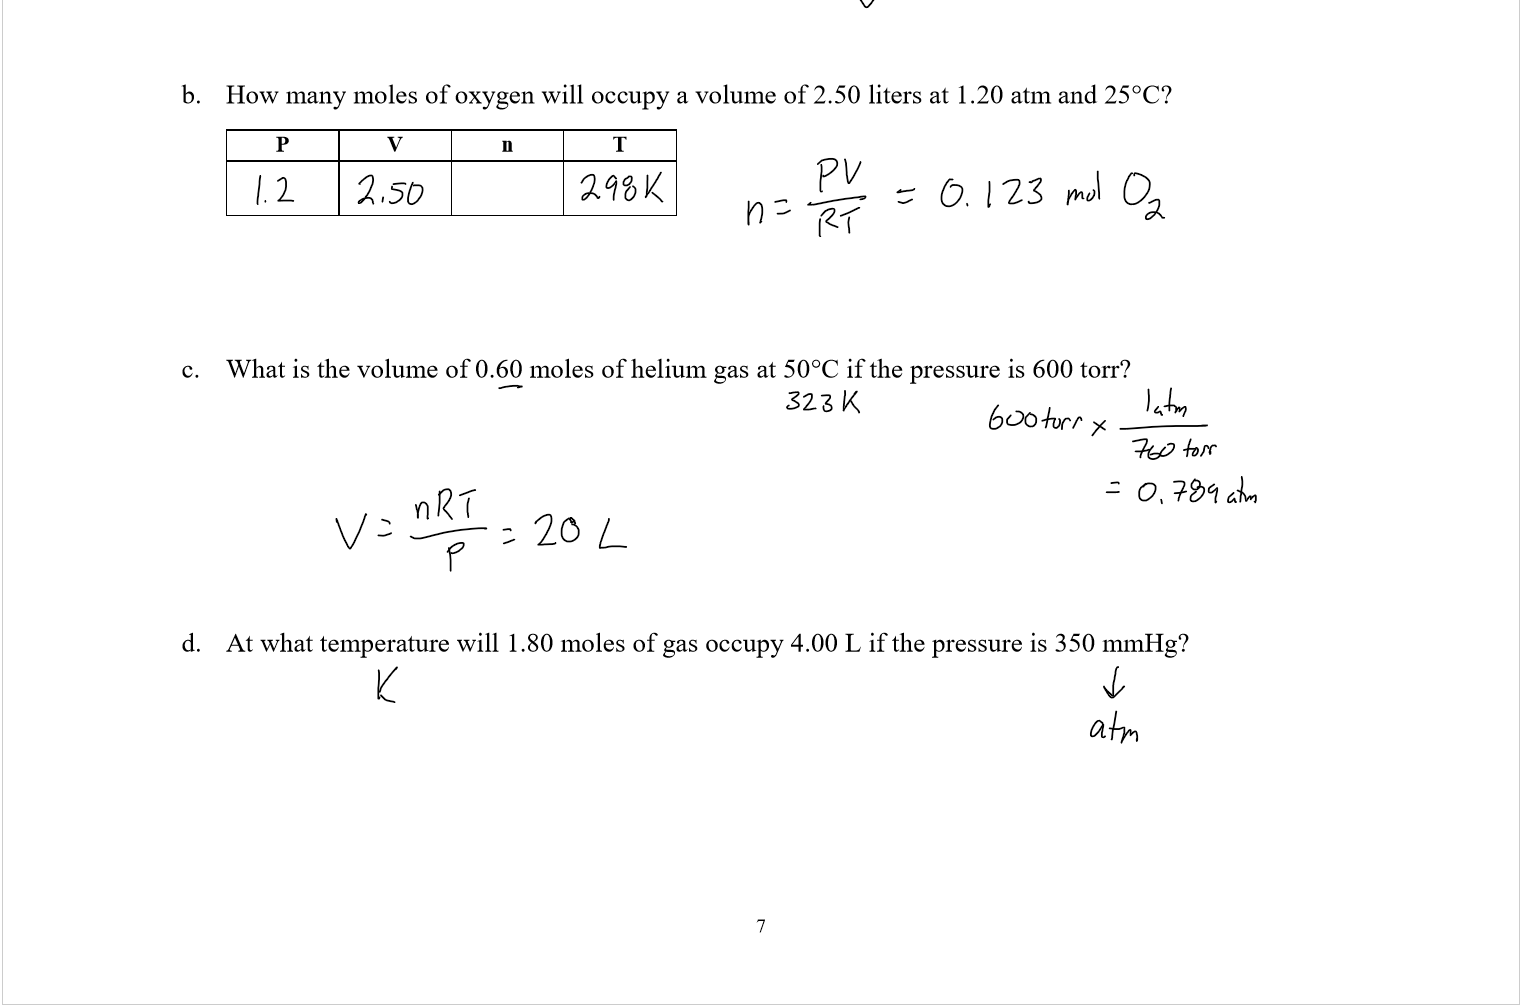 b. How many moles of oxygen will occupy a volume of 2.50 liters at 1.20 atm and 25°C?
P V n T
1.2 2.50 298K
n = PV/RT = 0.123 mol O₂
c. What is the volume of 0.60 moles of helium gas at 50°C if the pressure is 600 torr?
323K
600 torr x 1 atm/760 torr
= 0.789 atm
V = nRT/P = 20 L
d. At what temperature will 1.80 moles of gas occupy 4.00 L if the pressure is 350 mmHg?
K ↓
atm
7